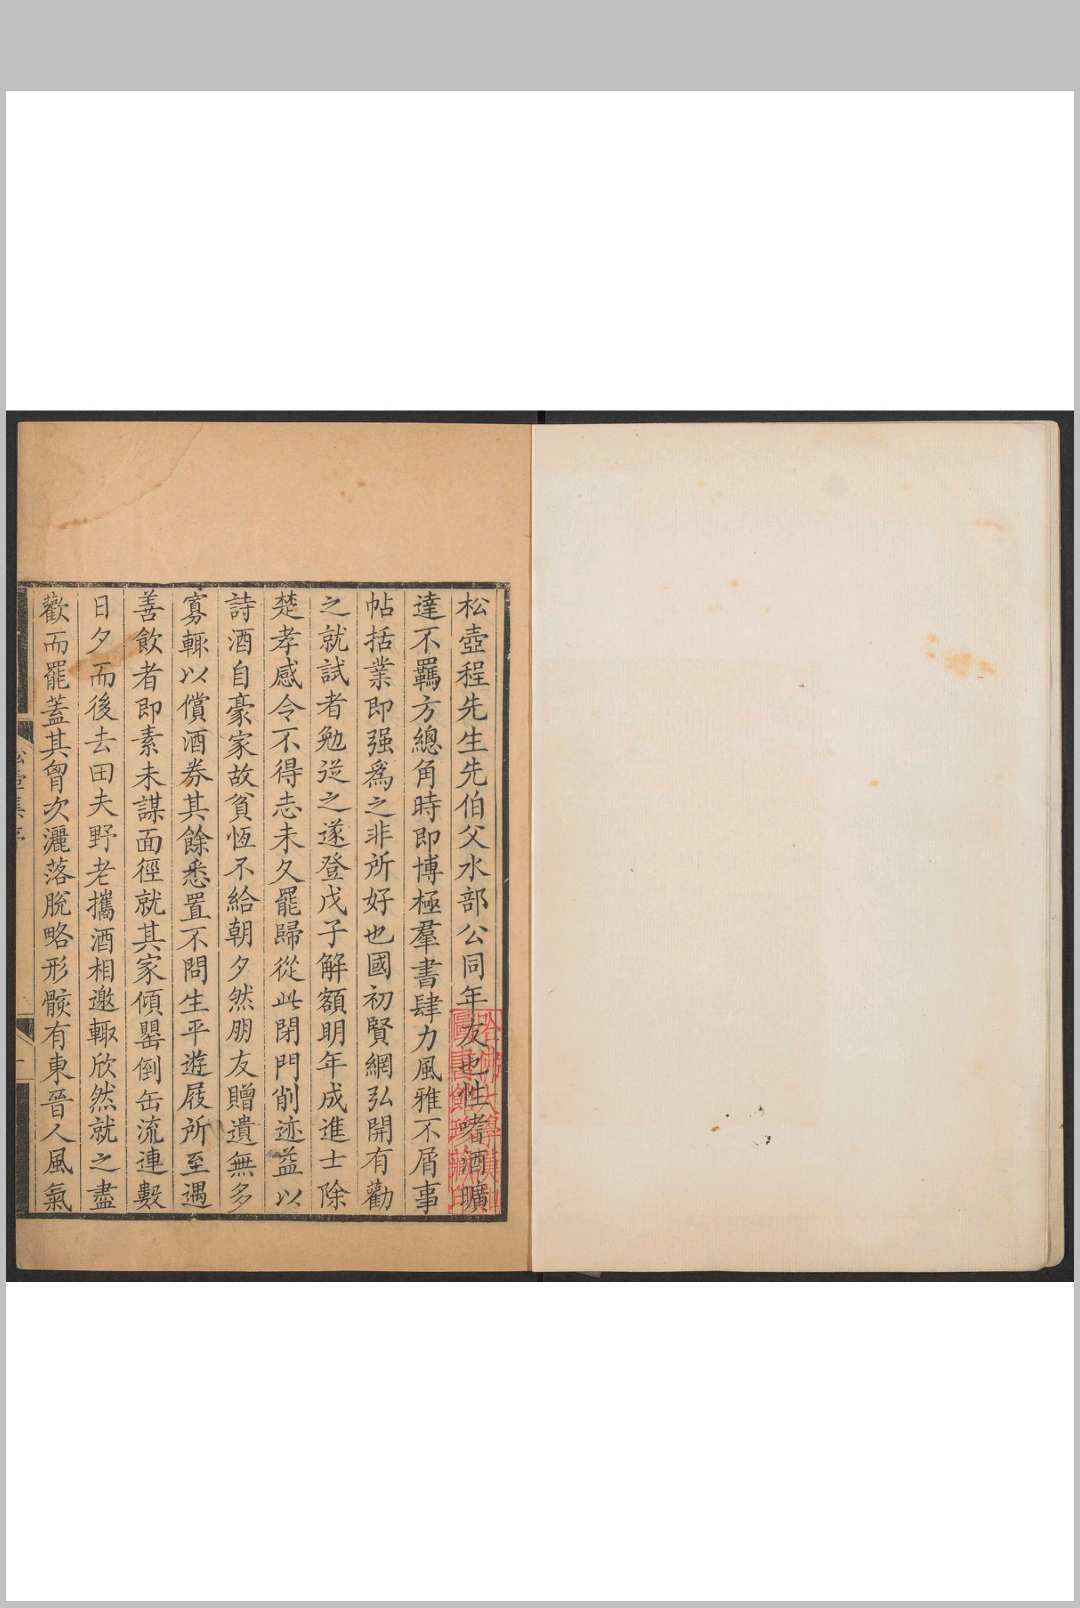 松壺程先生先伯父水部公同年友也性嗜酒曠
達不羈方總角時即博極羣書肆力風雅不屑事
帖括業即强爲之非所好也國初賢網弘開有勸
之就試者勉從之遂登戊子解額明年成進士除
楚孝感令不得志未久罷歸從此閉門削迹益以
詩酒自豪家故貧恆不給朝夕然朋友贈遺無多
寡輒以償酒券其餘悉置不問生平遊屐所至遇
善飲者即素未謀面徑就其家傾罌倒缶流連數
日夕而後去田夫野老攜酒相邀輒欣然就之盡
歡而罷蓋其胷次灑落脫略形骸有東晉人風氣
松壺集序
一
哈佛大學漢和
圖書館珍藏印